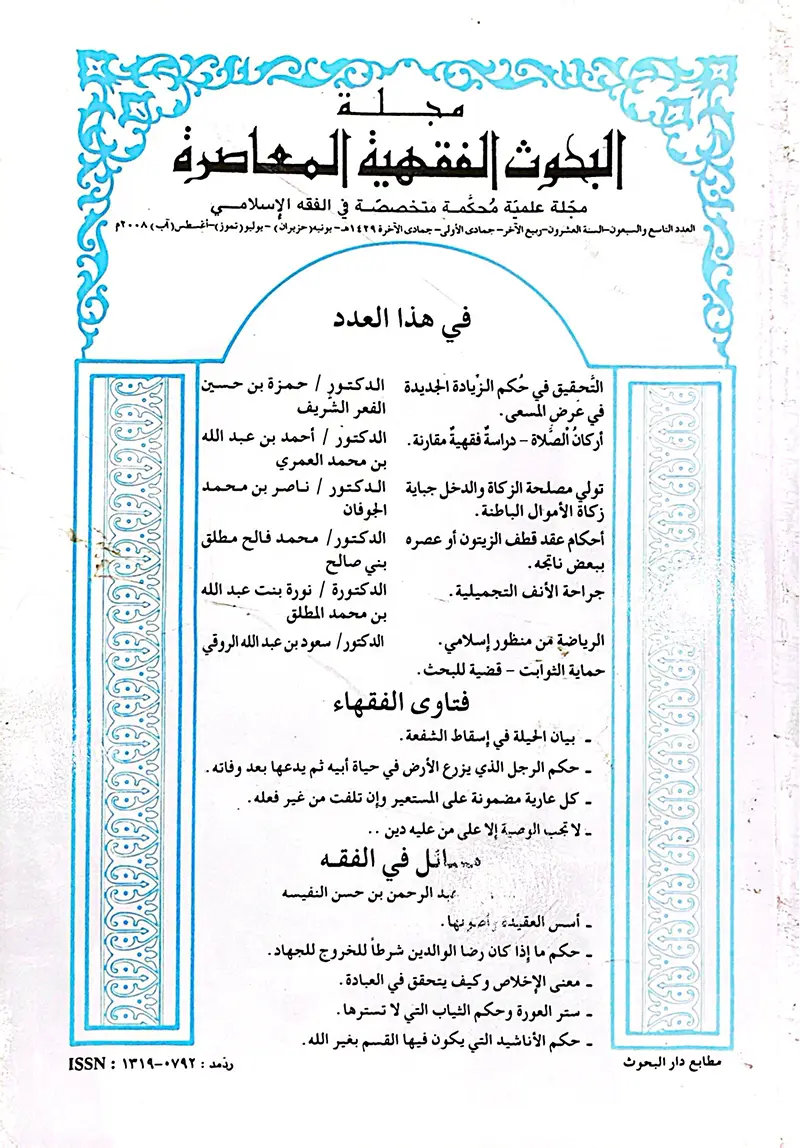 مجلة
البحوث الفقهية المعاصرة
مجلة علمية مُحكَّمة متخصصة في الفقه الإسلامي
العدد التاسع والسبعون-السنة العشرون-ربيع الآخر- جمادى الأولى- جمادى الآخرة ١٤٢٩هـ- يونيه(حزيران) - يوليو(تموز)-أغسطس(آب) ٢٠٠٨م
في هذا العدد
التَّحقيق في حُكم الزِّيادة الجديدة الدكتور / حمزة بن حسين
في عَرضِ المسعى. الفعر الشَّريف
أركانُ الصَّلاة - دراسةٌ فقهيةٌ مقارنة. الدكتور / أحمد بن عبد الله
بن محمد العمري
تولي مصلحة الزكاة والدخل جباية الدكتور / ناصر بن محمد
زكاة الأموال الباطنة. الجوفان
أحكام عقد قطف الزيتون أو عصره الدكتور/ محمد فالح مطلق
ببعض ناتجه. بني صالح
جراحة الأنف التجميلية. الدكتورة / نورة بنت عبد الله
بن محمد المطلق
الرياضة من منظور إسلامي. الدكتور/ سعود بن عبد الله الروقي
حماية الثوابت - قضية للبحث.
فتاوى الفقهاء
ـ بيان الحيلة في إسقاط الشفعة.
ـ حكم الرجل الذي يزرع الأرض في حياة أبيه ثم يدعها بعد وفاته.
ـ كل عارية مضمونة على المستعير وإن تلفت من غير فعله.
ـ لا تجب الوصية إلا على من عليه دين ..
مسائل في الفقه
عبد الرحمن بن حسن النفيسه
ـ أسس العقيدة وأصولها.
ـ حكم ما إذا كان رضا الوالدين شرطاً للخروج للجهاد.
ـ معنى الإخلاص وكيف يتحقق في العبادة.
ـ ستر العورة وحكم الثياب التي لا تسترها.
ـ حكم الأناشيد التي يكون فيها القسم بغير الله.
مطابع دار البحوث ردمد : ٠٧٩٢-١٣١٩ : ISSN